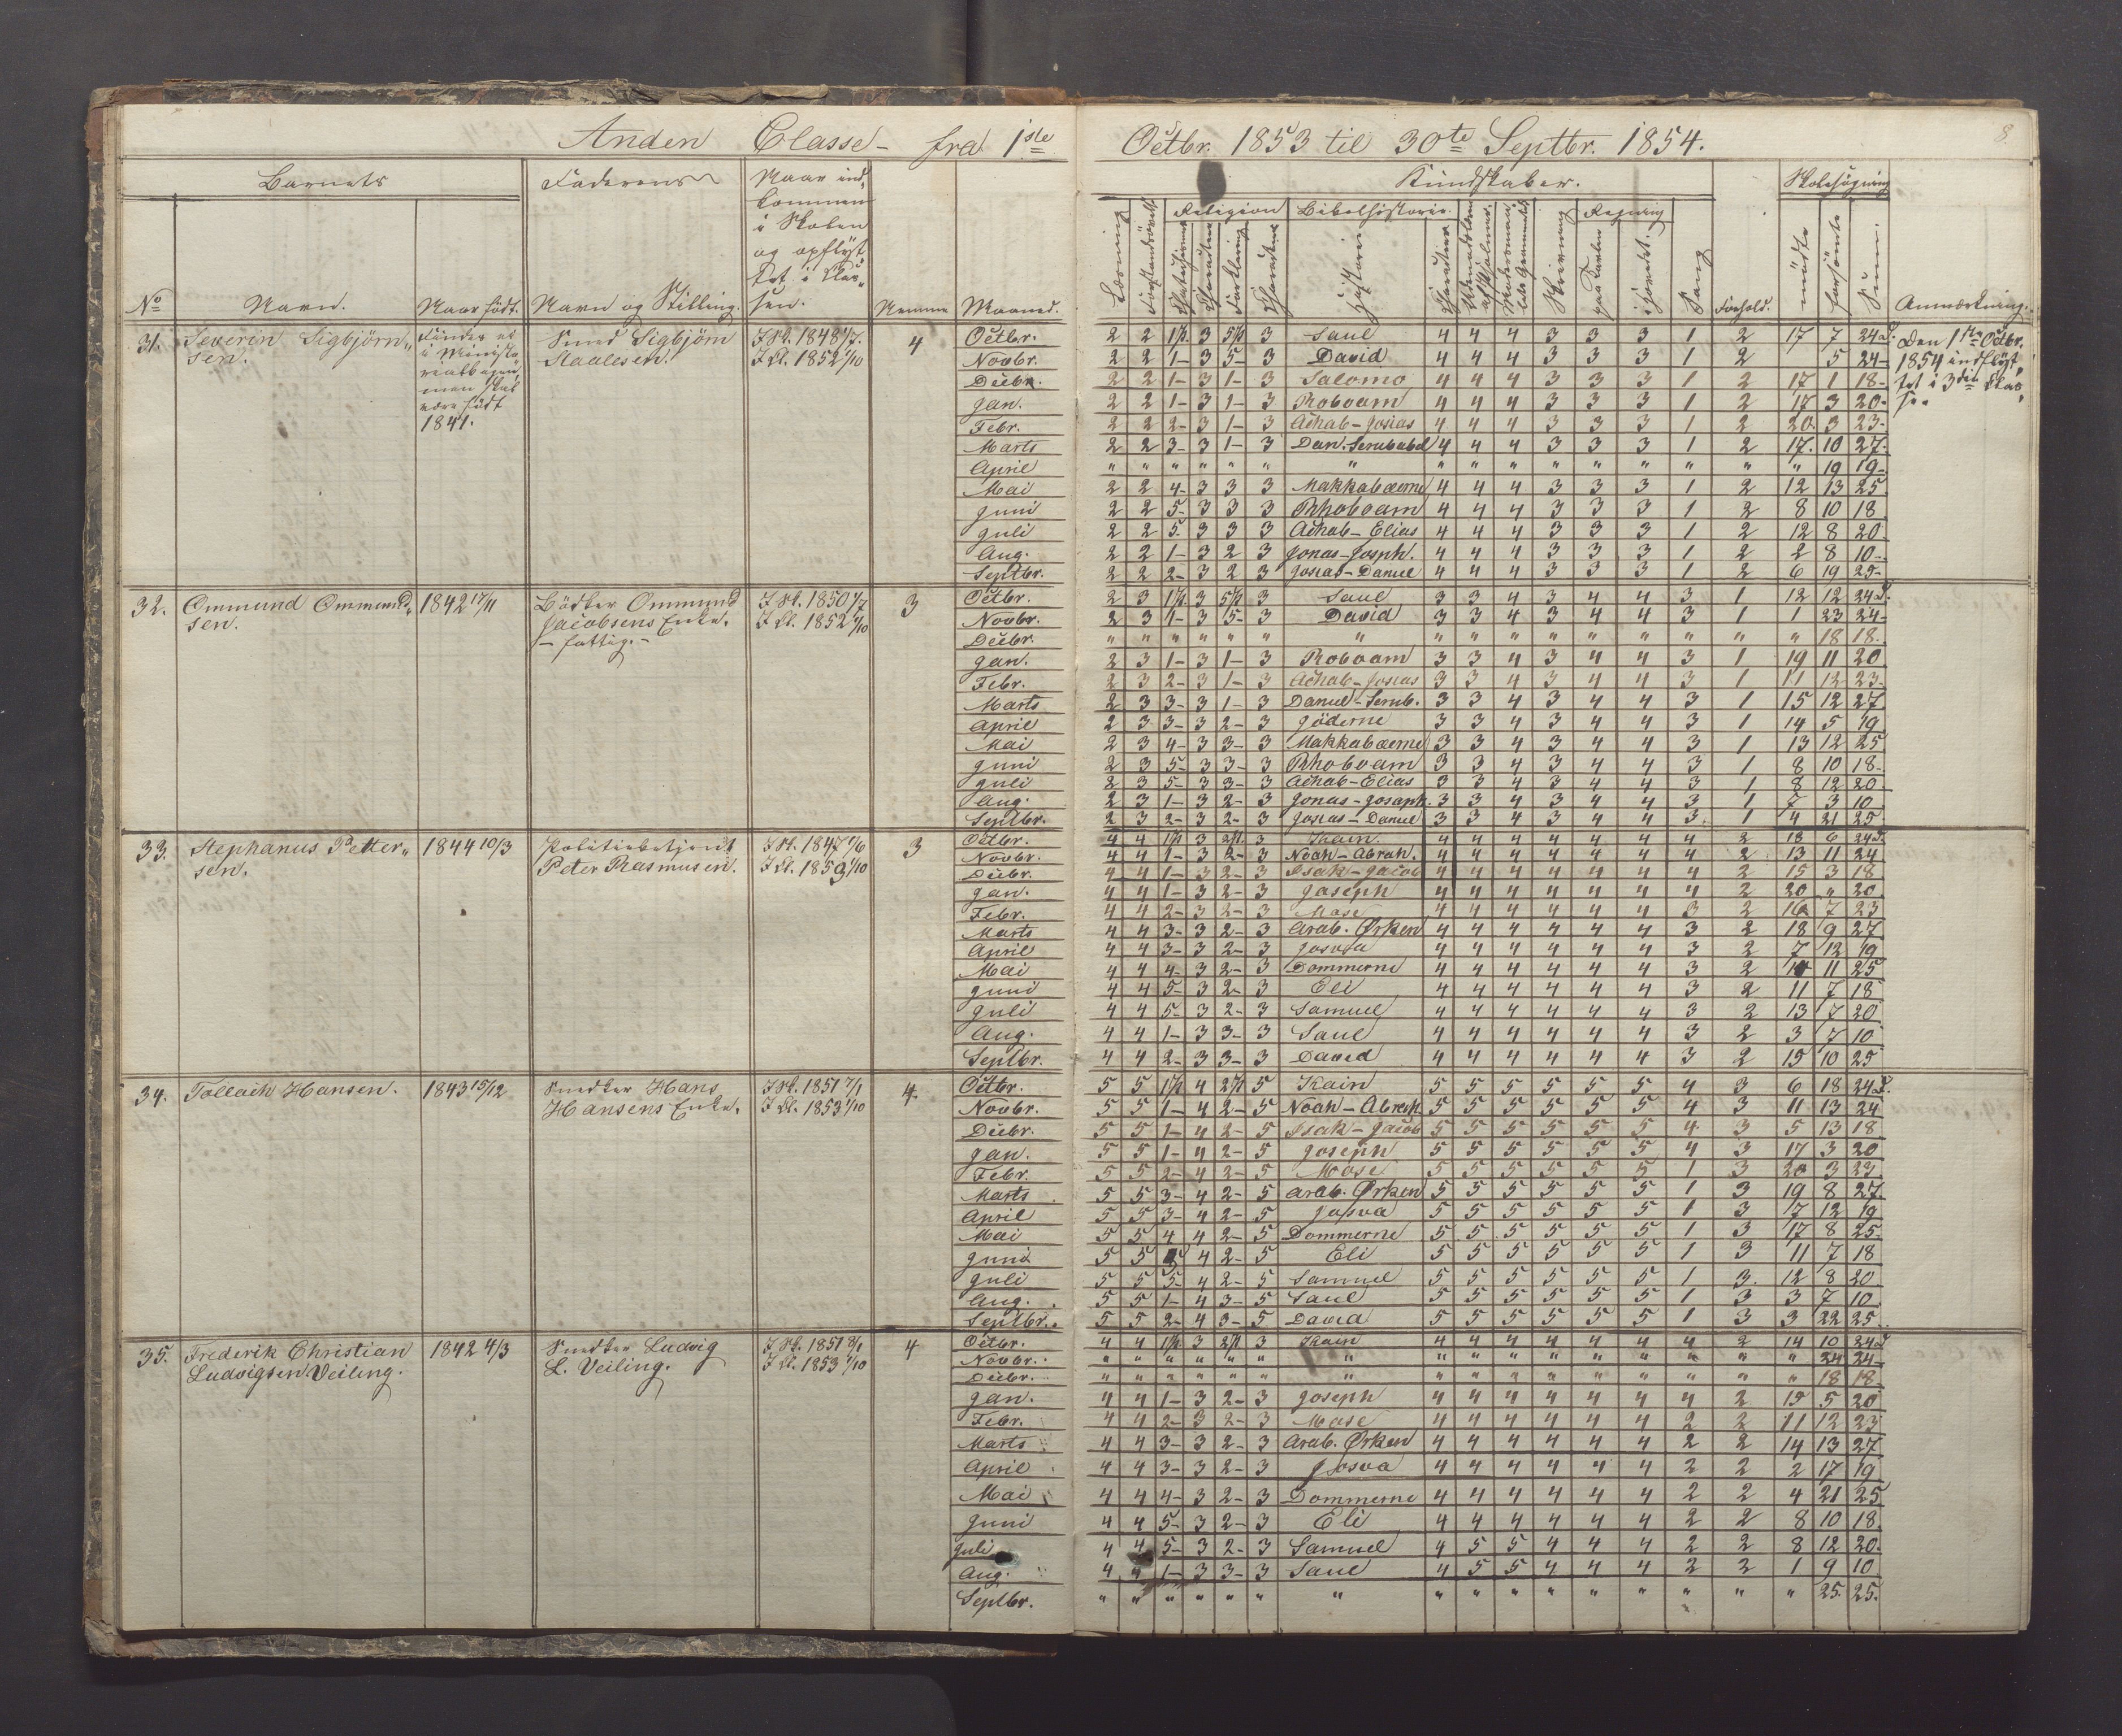 Anden Classe – fra 1ste Octbr. 1853 til 30te Septbr. 1854.
8
Barnets
Faderens
Naar ind-
kommen
i Skolen
og opflyt-
tet i Clas-
sen.
No
Navn.
Naar født.
Navn og Stilling.
Nemme
Maaned.
Kundskaber.
Skolesøgning
Religion
Bibelhistorie.
Regning
Læsning
Historie
Skrivning
paa Tavlen
i Hovedet.
Sang
Forhold.
mødte
forsømte
Sum.
Anmærkning.
31. Severin Sigbjørn-
sen.
Findes ei
i Ministe-
rialbogen,
men skal
være født
1841.
Smed Sigbjørn
Staalesen.
I Sk. 1848 1/7.
I Cl. 1852 1/10
4
Octbr. 2 2 1½ 3 5½ 3 Saul 4 4 4 3 3 3 1 2 17 7 24 D.
Novbr. 2 2 1– 3 5– 3 David 4 4 4 3 3 3 1 2 5 24–
Decbr. 2 2 1– 3 1– 3 Salomo 4 4 4 3 3 3 1 2 17 1 18–
Jan. 2 2 1– 3 1– 3 Roboam 4 4 4 3 3 3 1 2 17 3 20–
Febr. 2 2 2– 3 1– 3 Achab–Josias 4 4 4 3 3 3 1 2 20. 3 23–
Marts 2 2 3– 3 1– 3 Dan. Serubabel 4 4 4 3 3 3 1 2 17. 10 27.
April " " " " " " " " " " " " " " " " 19 19–
Mai 2 2 4– 3 3 3 Makkabæerne 4 4 4 3 3 3 1 2 12 13 25
Juni 2 2 5– 3 3 3 Rhoboam 4 4 4 3 3 3 1 2 8 10 18
Juli 2 2 5. 3 3 3 Achab–Elias 4 4 4 3 3 3 1 2 12 8 20
Aug. 2 2 1– 3 2 3 Jonas–Josaph. 4 4 4 3 3 3 1 2 2 8 10–
Septbr. 2 2 2– 3 2 3 Josias–Daniel 4 4 4 3 3 3 1 2 6 19 25–
Den 1ste Octbr.
1854 indflyt-
tet i 3die Clas-
se.
32. Ommund Ommund-
sen.
1842 17/11
Bødker Ommund
Jacobsens Enke.
– fattig. –
I Sk. 1850 1/7
I Cl. 1852 1/10
3
Octbr. 2 3 1½ 3 5½ 3 Saul 3 3 4 3 4 4 3 1 12 12 24 D.
Novbr. 2 3 1– 3 5– 3 David 3 3 4 3 4 4 3 1 1 23 24–
Decbr. " " " " " " " " " " " " " " " " 18 18.
Jan. 2 3 1– 3 1– 3 Roboam 3 3 4 3 4 4 3 1 19 11 20
Febr. 2 3 2– 3 1– 3 Achab–Josias 3 3 4 3 4 4 3 1 11 12 23–
Marts 2 3 3– 3 1– 3 Daniel–Serub. 3 3 4 3 4 4 3 1 15 12 27
April 2 3 3– 3 2– 3 Jøderne 3 3 4 3 4 4 3 1 14 5 19
Mai 2 3 4– 3 3– 3 Makkabæerne 3 3 4 3 4 4 3 1 13 12 25
Juni 2 3 5– 3 3– 3 Rhoboam 3 3 4 3 4 4 3 1 8 10 18–
Juli 2 3 5– 3 3– 3 Achab–Elias 3 3 4 3 4 4 3 1 8 12 20
Aug. 2 3 1– 3 2– 3 Jonas–Josaph. 3 3 4 3 4 4 3 1 7 3 10
Septbr. 2 3 2– 3 2– 3 Josias–Daniel 3 3 4 3 4 4 3 1 4 21 25
33. Stephanus Petter-
sen.
1844 10/3
Politibetjent
Peter Rasmusen.
I Sk. 1847 1/6
I Cl. 1853 1/10
3
Octbr. 4 4 1½ 3 2½ 3 Kain. 4 4 4 4 4 4 4 2 18 6 24 D.
Novbr. 4 4 1– 3 2– 3 Noah–Abrah. 4 4 4 4 4 4 4 2 13 11 24
Decbr. 4 4 1– 3 2– 3 Isak–Jacob 4 4 4 4 4 4 4 2 15 3 18
Jan. 4 4 1– 3 2– 3 Joseph 4 4 4 4 4 4 4 2 20 " 20
Febr. 4 4 2– 3 2– 3 Mose 4 4 4 4 4 4 3 2 16 7 23
Marts 4 4 3– 3 2– 3 Arab. Ørken 4 4 4 4 4 4 3 2 18 9 27
April 4 4 3– 3 2– 3 Josva 4 4 4 4 4 4 3 2 7 12 19
Mai 4 4 4– 3 2– 3 Dommerne 4 4 4 4 4 4 3 2 14 11 25
Juni 4 4 5– 3 2– 3 Eli 4 4 4 4 4 4 3 2 11 7 18
Juli 4 4 5– 3 2– 3 Samuel 4 4 4 4 4 4 3 2 13 7 20
Aug. 4 4 1– 3 3– 3 Saul 4 4 4 4 4 4 3 2 3 7 10
Septbr. 4 4 2– 3 3– 3 David 4 4 4 4 4 4 3 2 15 10 25
34. Tollach Hansen.
1843 15/12
Snedker Hans
Hansens Enke.
I Sk. 1851 7/1
I Cl. 1853 1/10
4.
Octbr. 5 5 1½ 4 2½ 5 Kain 5 5 5 5 5 5 4 3 6 18 24 D.
Novbr. 5 5 1– 4 2– 5 Noah–Abrah. 5 5 5 5 5 5 4 3 11 13 24
Decbr. 5 5 1– 4 2– 5 Isak–Jacob 5 5 5 5 5 5 4 3 5 13 18
Jan. 5 5 1– 4 2– 5 Joseph 5 5 5 5 5 5 4 3 17 3 20
Febr. 5 5 2– 4 2– 5 Mose 5 5 5 5 5 5 1 3 20 3 23
Marts 5 5 3– 4 2– 5 Arab. Ørken 5 5 5 5 5 5 1 3 19 8 27.
April 5 5 3– 4 2– 5 Josva 5 5 5 5 5 5 1 3 7 12 19
Mai 5 5 4 4 2– 5 Dommerne 5 5 5 5 5 5 1 3 17 8 25.
Juni 5 5 5 4 2– 5 Eli 5 5 5 5 5 5 1 3 11 7 18
Juli 5 5 5– 4 2– 5 Samuel 5 5 5 5 5 5 1 3. 12 8 20
Aug. 5 5 1– 4 3– 5 Saul 5 5 5 5 5 5 1 3 3 7 10
Septbr. 5 5 2– 4 3– 5 David 5 5 5 5 5 5 1 3 3 22 25.
35. Frederik Christian
Ludvigsen Veiling.
1842 4/3
Snedker Ludvig
L. Veiling.
I Sk. 1851 8/1
I Cl. 1853 1/10
4
Octbr. 4 4 1½ 3 2½ 3 Kain 4 4 4 4 4 4 4 2 14 10 24 D
Novbr. " " " " " " " " " " " " " " " " 24 24–
Decbr. " " " " " " " " " " " " " " " " 18 18
Jan. 4 4 1– 3 2– 3 Joseph 4 4 4 4 4 4 4 2 15 5 20
Febr. 4 4 2– 3 2– 3 Mose 4 4 4 4 4 4 2 2 11 12 23
Marts 4 4 3– 3 2– 3 Arab. Ørken 4 4 4 4 4 4 2 2 14 13 27
April 4 4 3– 3 2– 3 Josva 4 4 4 4 4 4 2 2 2 17 19
Mai 4 4 4– 3 2– 3 Dommerne 4 4 4 4 4 4 2 2 4 21 25
Juni 4 4 5– 3 2– 3 Eli 4 4 4 4 4 4 2 2 8 10 18.
Juli 4 4 5– 3 2– 3 Samuel 4 5 5 4 4 4 2 2 8 12 20.
Aug. 4 4 1– 3 3– 3 Saul 4 5 5 4 4 4 2 2 1 9 10
Septbr. " " " " " " " " " " " " " " " " 25. 25.